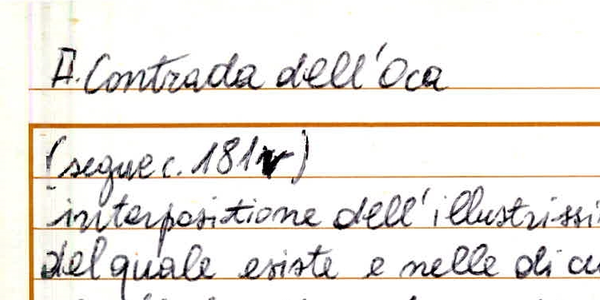 A. Contrada dell'Oca
(segue c. 181v)
interpositione dell'illustrissi
del quale esiste e nelle di cu